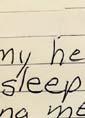 my he
sleep
ng me